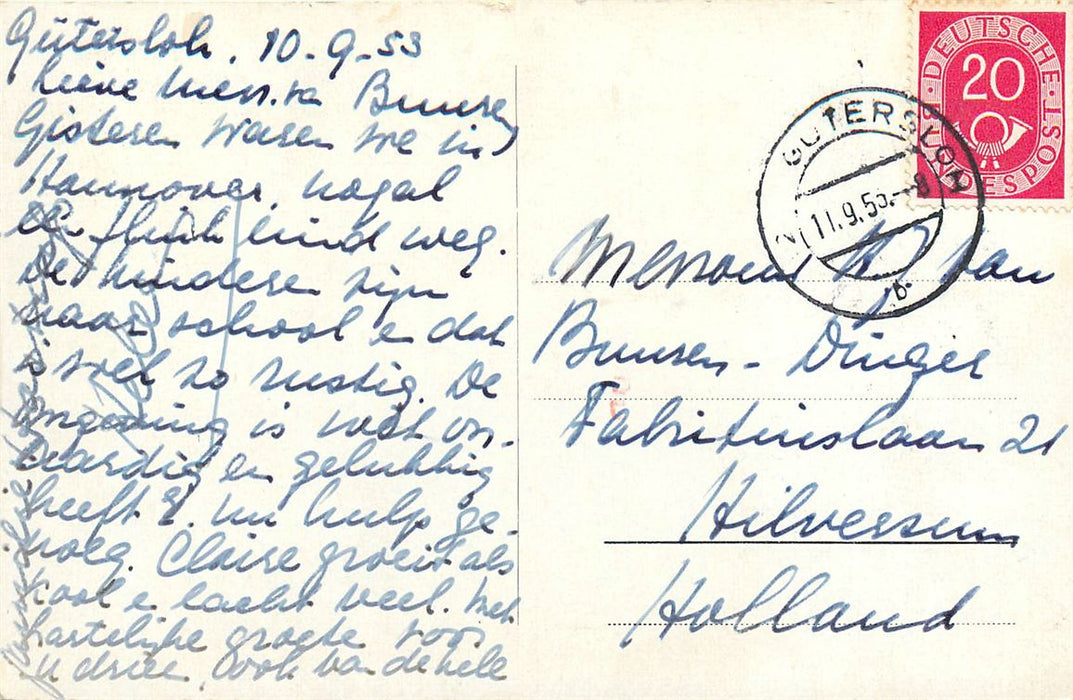 Gütersloh, 10-9-53
Lieve Mevr. van Buuren
Gisteren waren we in
Hannover, nogal
een flink eind weg.
De kinderen zijn
naar school e dat
is wel zo rustig. De
omgeving is wat on-
aardig en gelukkig
heeft E. nu hulp ge-
noeg. Claire groeit als
kool e lacht veel. Met
hartelijke groete voor
u drieë, ook van de hele
Mevrouw van
Buuren - Dinger
Fabritiuslaan 21
Hilversum
Holland
DEUTSCHE
BUNDESPOST
20
GÜTERSLOH
11.9.53.-8
b